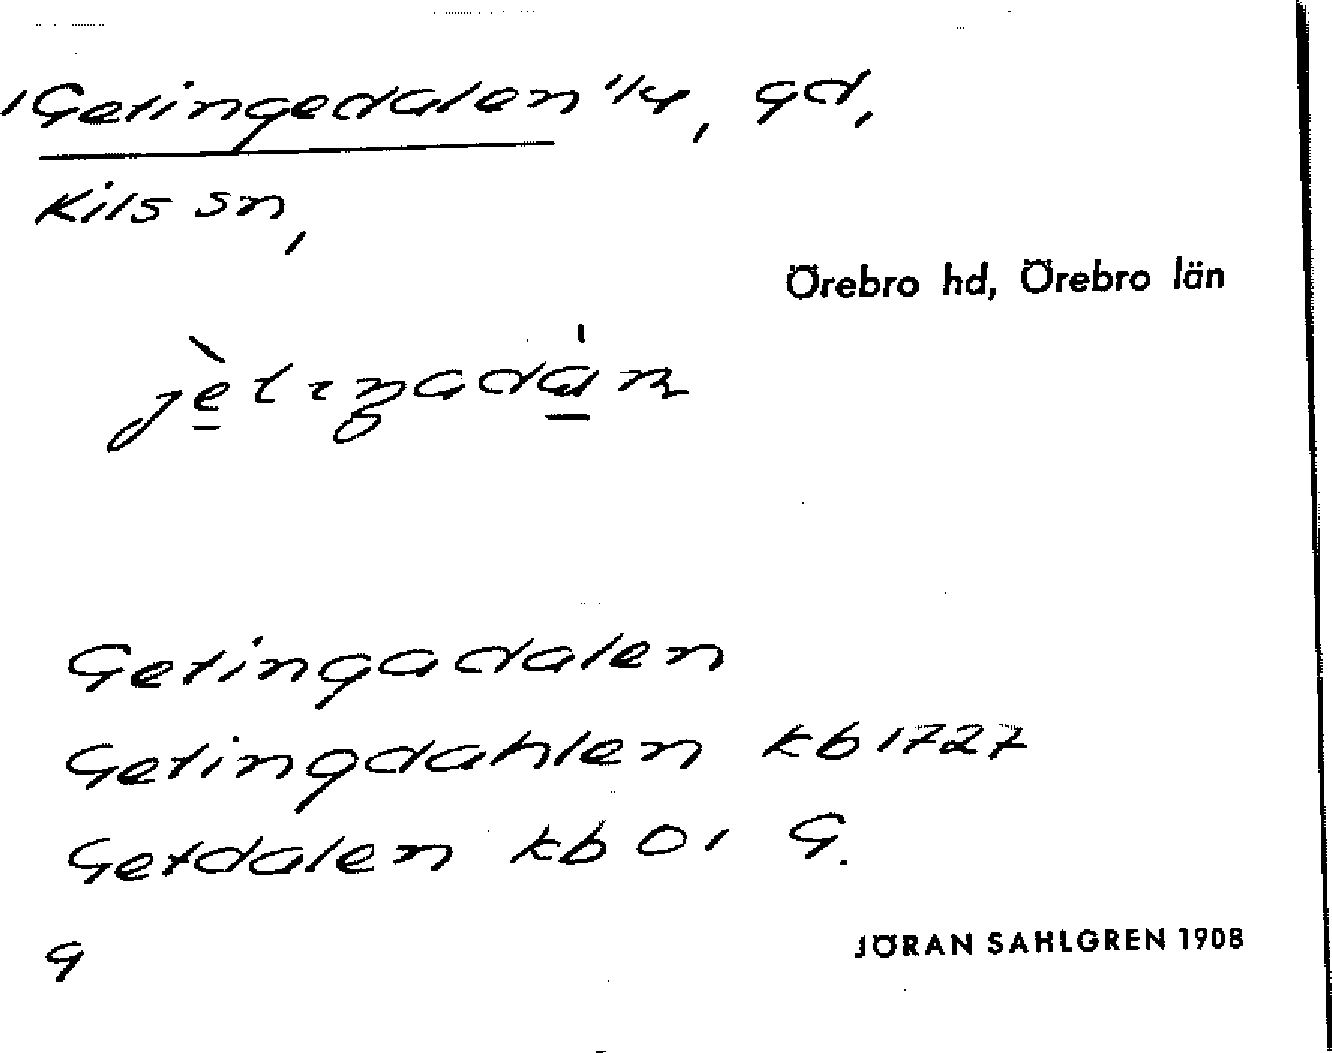 Getingedalen 1/4, gd,
Kils sn,
Örebro hd, Örebro län
Getingadalen
Getingdahlen kb 1727
Getdalen kb 01 G.
G
JÖRAN SAHLGREN 1908